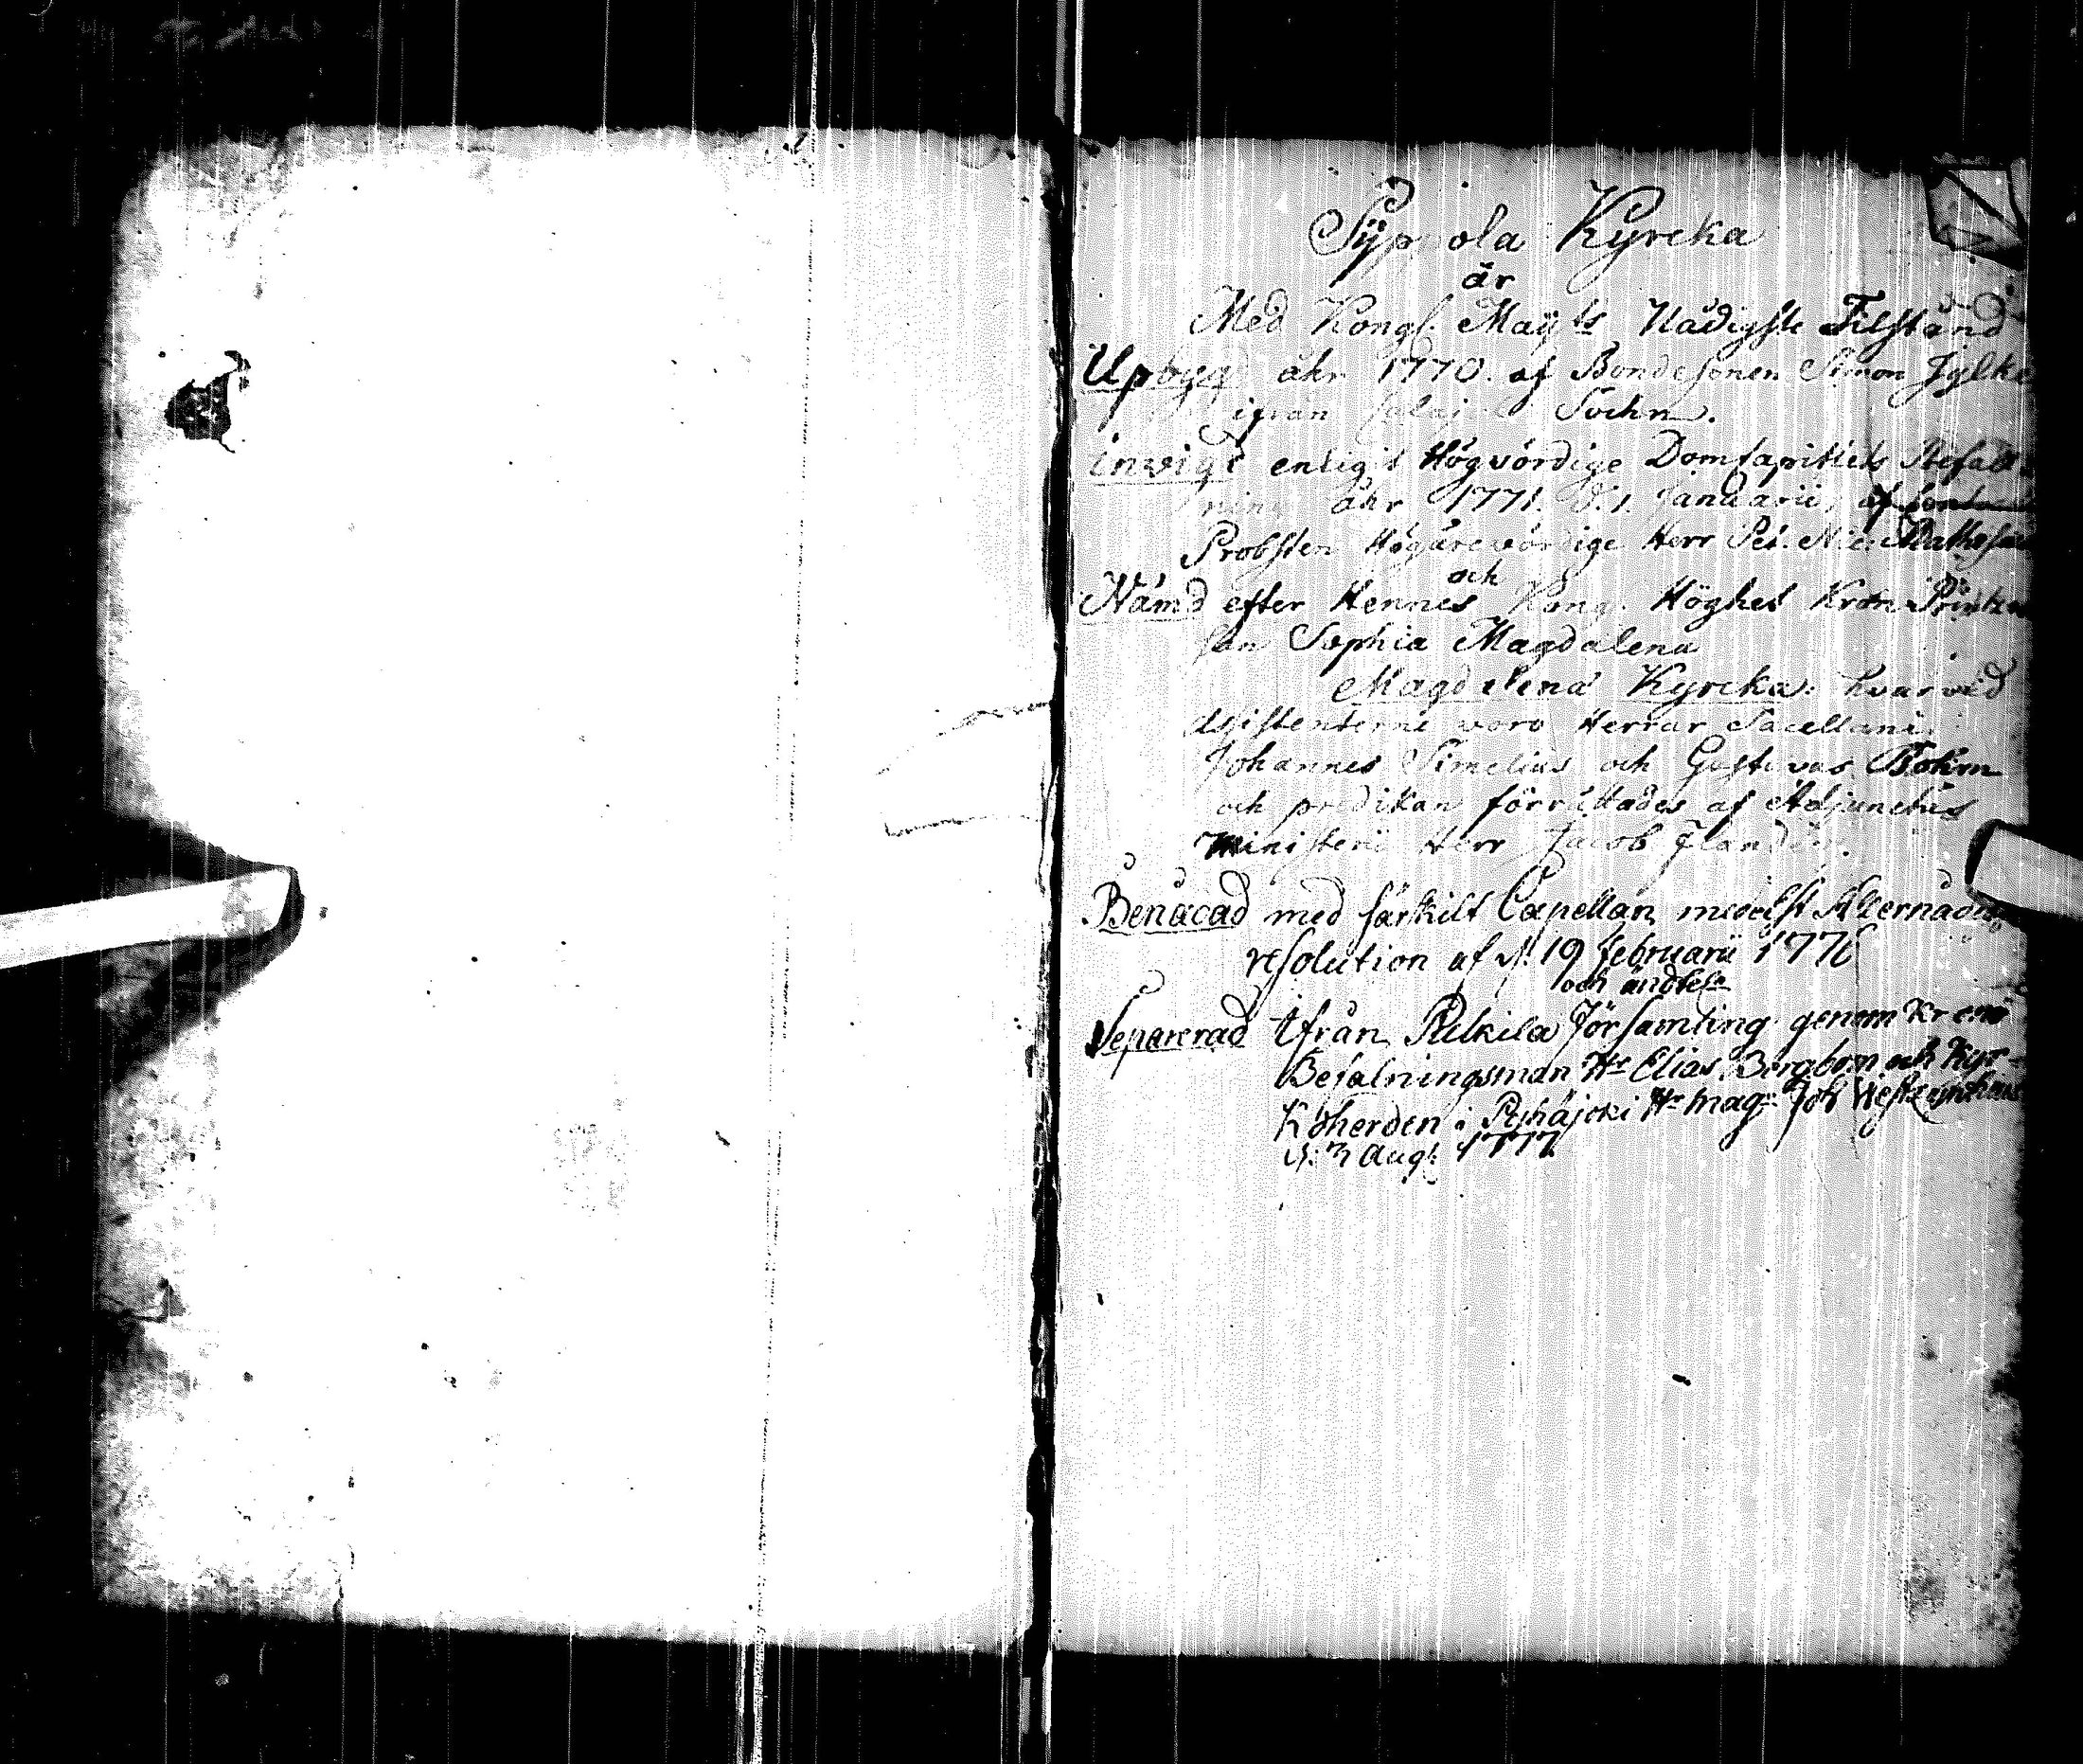 Syppola Kyrcka
är
Med Kongl. Maij:ts Nådigste Tilstånd
Upbygd åhr 1770. af Bondesonen Simon Jylkä
ifrån Sochn.
invigd enligit Högvördige Domcapitlets Befall-
ning åhr 1771. d. 1. Januarii, af
Probsten Högärevördige Herr Pet. Nic. Mathesius
och
Nämd efter Hennes Kong. Höghet Kron Printzes-
san Sophia Magdalena
Magdalena Kyrcka: hvarvid
Assistenterne voro Herrar Sacellani
Johannes Simelius och Gustavus Bohm
och predikan förrättades af Adjunctus
Ministerii Herr Jacob
Benåcad med särskilt Capellan medelst Allernådig
resolution af d. 19 februarii 1776
och ändtel:n
Separerad ifrån Pulkila Församling genom Krono
Befalningsman H:r Elias Bergbom och Kyr-
koherden i Pyhäjoki H:r Mag:r Joh Westzynthius
d: 3 Aug: 1777